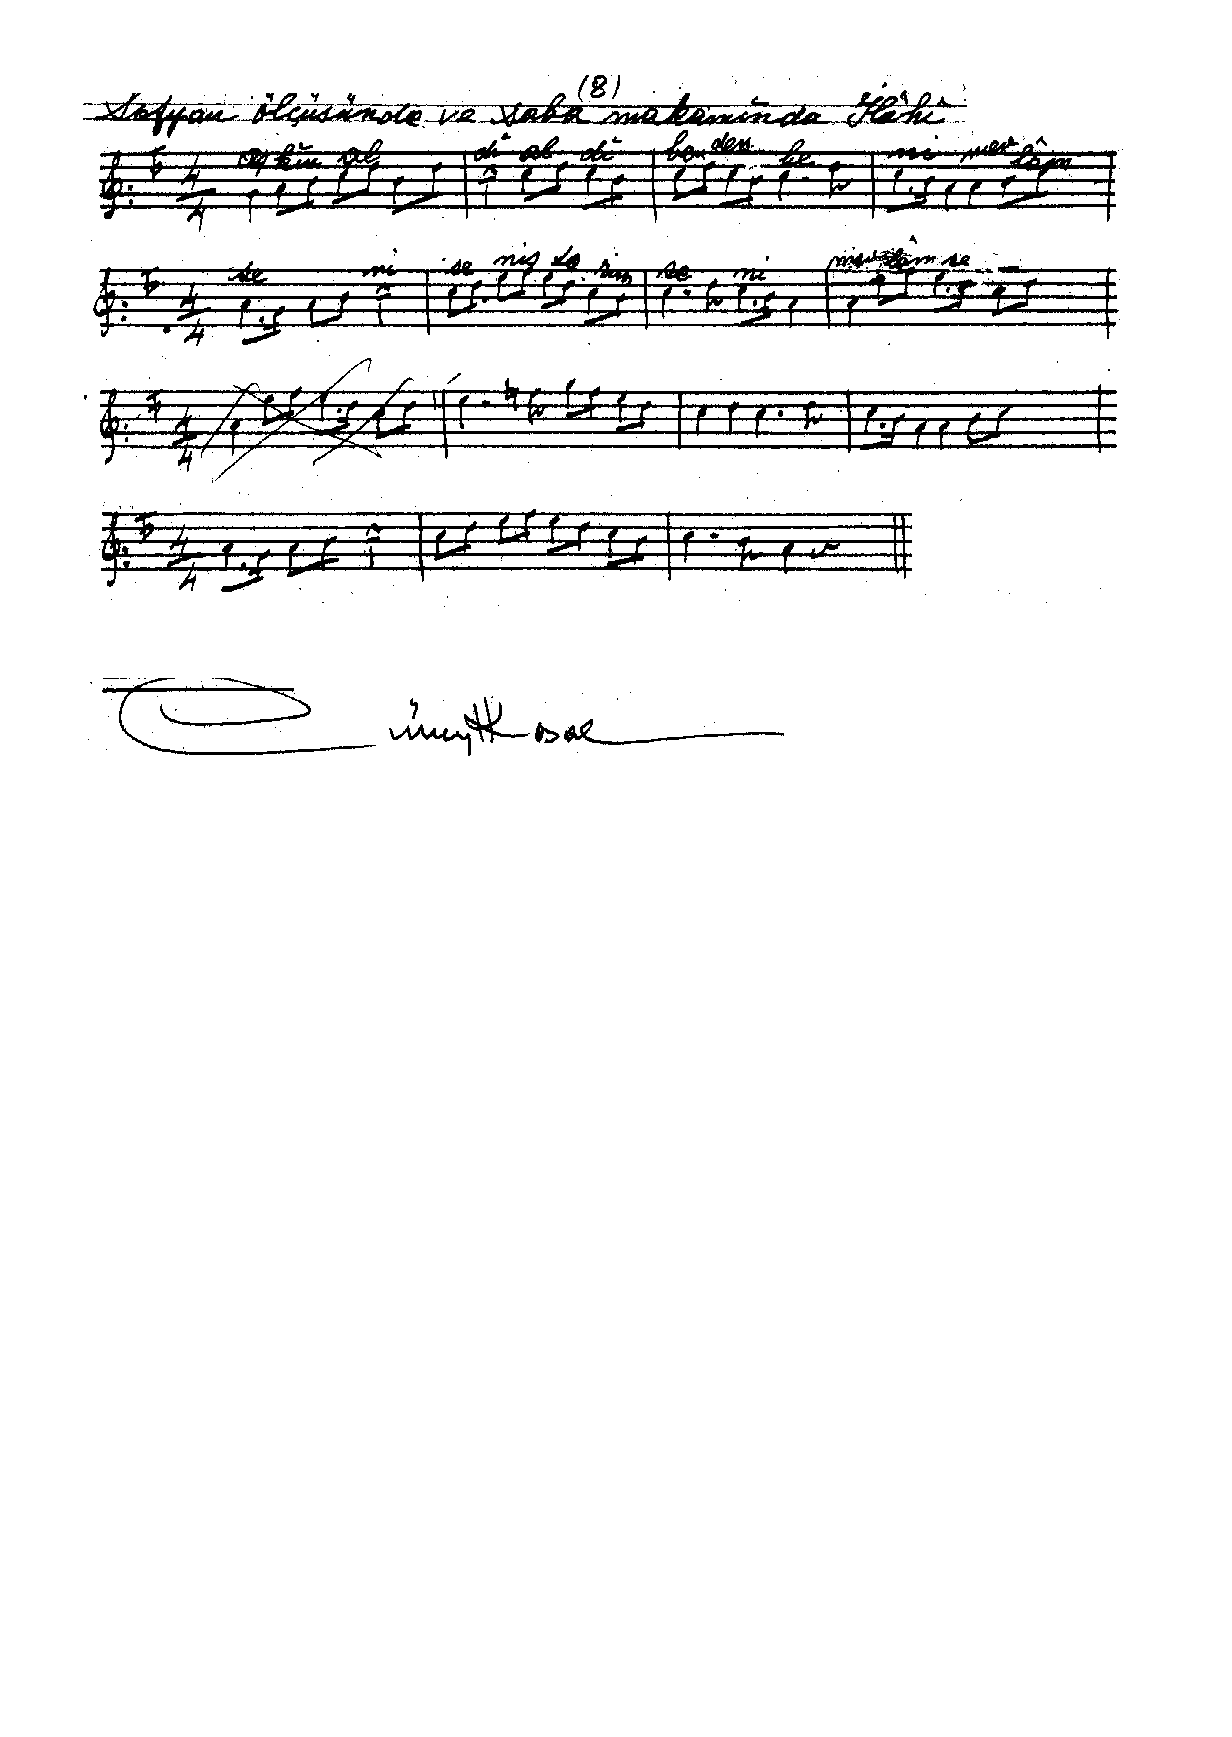 (8)
Sofyan ölçüsünde ve Saba makamında İlâhi
4/4 aş kın al di al di ben den be ni mev lâm
4/4 se ni se niş to rim se ni mev lâm se
4/4
4/4
Cüneyt Kosal